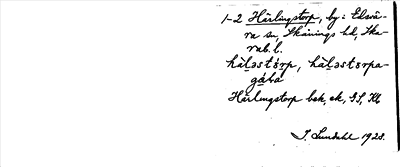 1-2 Härlingstorp, by i Elsvä-
ra sn, Skånings hd, Ska-
rab. l.
hä̀ləstórp, hä̀ləstorpa-
gába
Härlingstorp bek, ek, GS, Kb
I. Lundahl 1928.